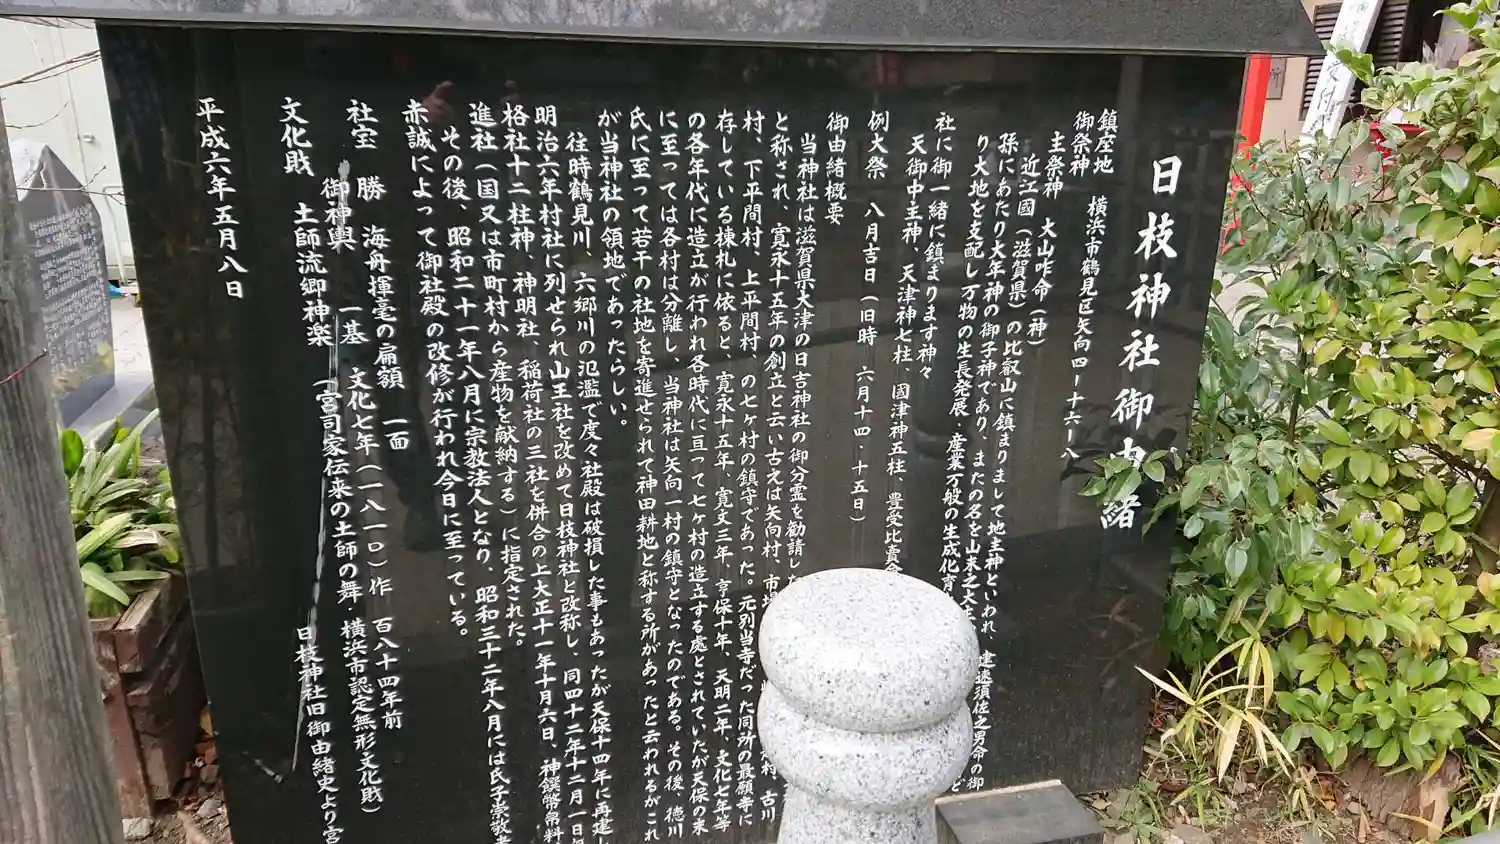 日枝神社御由緒
鎮座地 横浜市鶴見区矢向四ー十六ー八
御祭神
主祭神 大山咋命(神)
近江國(滋賀県)の比叡山に鎮まりまして地主神といわれ 建速須佐之男命の御
孫にあたり大年神の御子神であり、またの名を山末之大主
り大地を支配し万物の生長発展、産業万般の生成化育
社に御一緒に鎮まります神々
天御中主神、天津神七柱、國津神五柱、豊受比賣命
例大祭 八月吉日(旧時 六月十四、十五日)
御由緒概要
当神社は滋賀県大津の日吉神社の御分霊を勧請した
と称され、寛永十五年の創立と云い古えは矢向村、市場
村、下平間村、上平間村、の七ヶ村の鎮守であった。元別当寺だった同所の最願寺に
存している棟札に依ると、寛永十五年、寛文三年、亨保十年、天明二年、文化七年等
の各年代に造立が行われ各時代に亘って七ヶ村の造立する處とされていたが天保の末
に至っては各村は分離し、当神社は矢向一村の鎮守となったのである。その後、徳川
氏に至って若干の社地を寄進せられて神田耕地と称する所があったと云われるがこれ
が当神社の領地であったらしい。
往時鶴見川、六郷川の氾濫で度々社殿は破損した事もあったが天保十四年に再建し
明治六年村社に列せられ山王社を改めて日枝神社と改称し、同四十二年十二月一日
格社十二柱神、神明社、稲荷社の三社を併合の上大正十一年十月六日、神饌幣帛料
進社(国又は市町村から産物を献納する)に指定された。
その後、昭和二十一年八月に宗教法人となり、昭和三十二年八月には氏子崇敬者
赤誠によって御社殿の改修が行われ今日に至っている。
社宝 勝 海舟揮毫の扁額 一面
御神輿 一基 文化七年(一八一〇)作 百八十四年前
文化財 土師流郷神楽 (宮司家伝来の土師の舞・横浜市認定無形文化財)
日枝神社旧御由緒史より
平成六年五月八日
受付